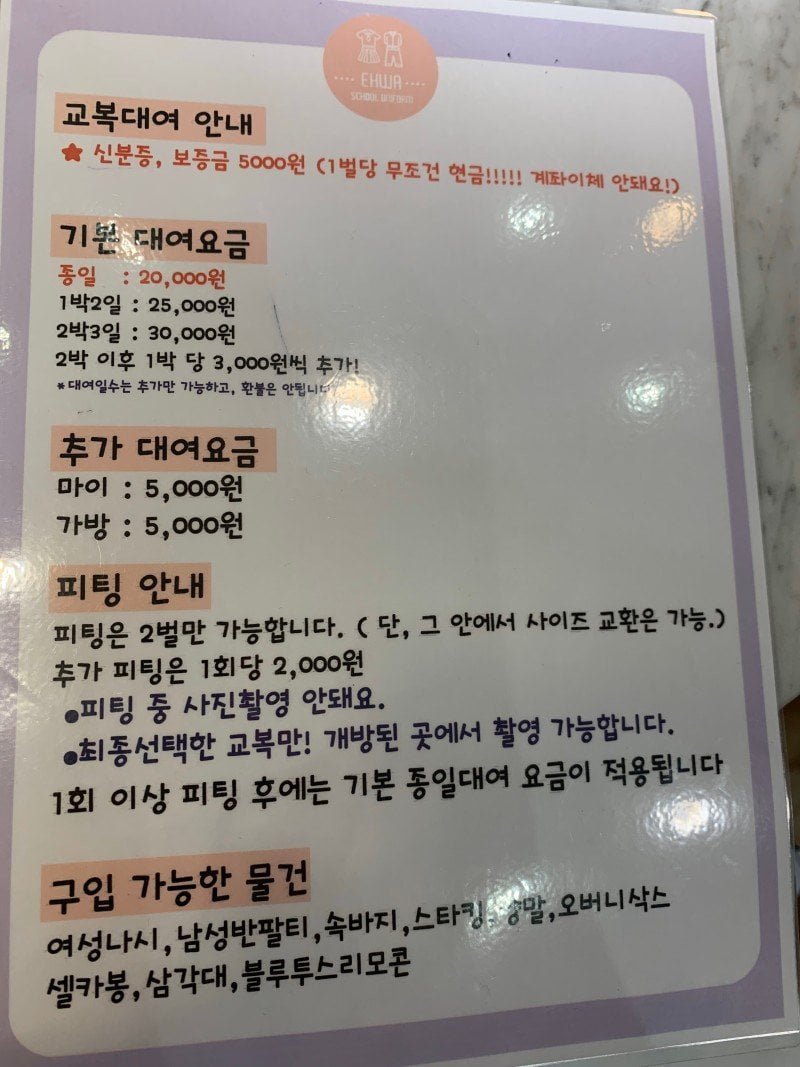 EHWA
SCHOOL UNIFORM
교복대여 안내
★ 신분증, 보증금 5000원 (1벌당 무조건 현금!!!!! 계좌이체 안돼요!)
기본 대여요금
종일 : 20,000원
1박2일 : 25,000원
2박3일 : 30,000원
2박 이후 1박 당 3,000원씩 추가!
*대여일수는 추가만 가능하고, 환불은 안됩니다
추가 대여요금
마이 : 5,000원
가방 : 5,000원
피팅 안내
피팅은 2벌만 가능합니다. ( 단, 그 안에서 사이즈 교환은 가능.)
추가 피팅은 1회당 2,000원
●피팅 중 사진촬영 안돼요.
●최종선택한 교복만! 개방된 곳에서 촬영 가능합니다.
1회 이상 피팅 후에는 기본 종일대여 요금이 적용됩니다
구입 가능한 물건
여성나시,남성반팔티,속바지,스타킹,양말,오버니삭스
셀카봉,삼각대,블루투스리모콘